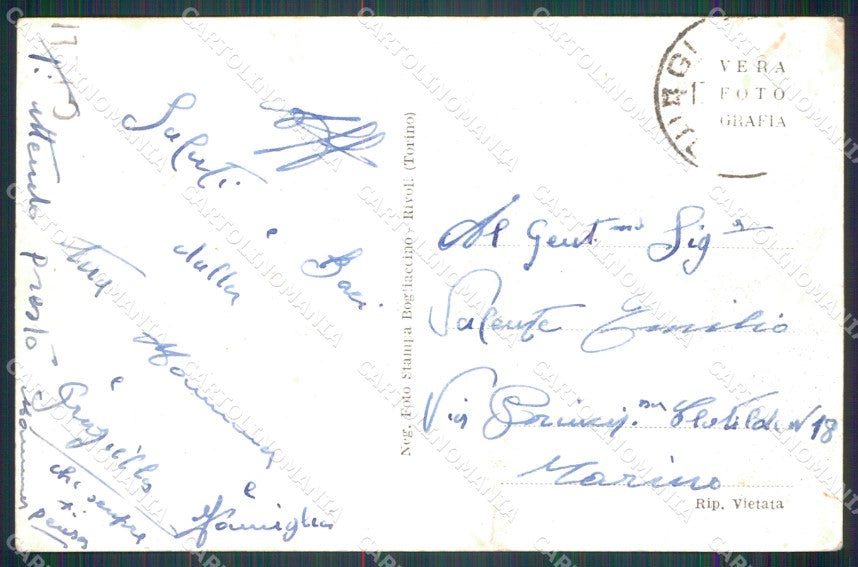 Saluti e Baci
dalla
tua Mamma
e Graziella e
Famiglia
che sempre
ti pensa
Mamma
Ti attendo presto
Neg. (Foto Stampa Bogliaccino - Rivoli (Torino)
VERA
FOTO
GRAFIA
Al Gent.mo Sig.r
Valente Emilio
Via Princip.sa Clotilde N 18
Torino
Rip. Vietata
CARTOLINOMANIA